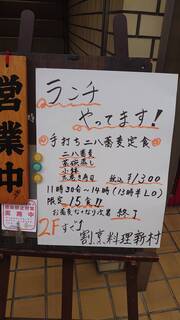 ランチ
やってます!
手打ち二八蕎麦定食
二八蕎麦
茶碗蒸し
小鉢
税込 ¥1300
11時30分〜14時(13時半LO)
限定 15食!!
お蕎麦なくなり次第 終了
2Fすぐ!
割烹料理新村
営業中
実施中